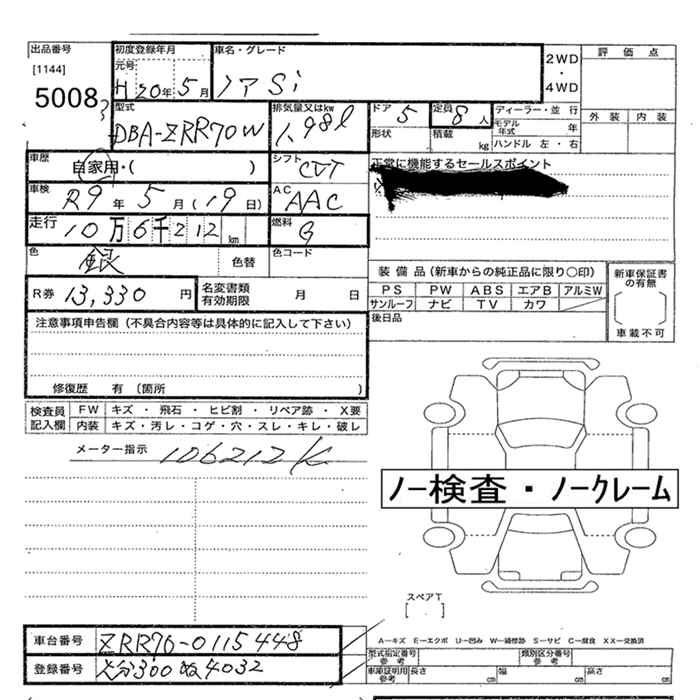 出品番号 初度登録年月 車名・グレード 評価点
[1144] 元号 2WD・4WD
5008 H 20年 5月 ノア Si 外装 内装
型式 排気量又はkw ドア 5 定員 8人 ディーラー・並行
DBA-ZRR70W 1.98ℓ 形状 積載 kg モデル年式 年
ハンドル 左・右
車歴 自家用・( ) シフト CVT 正常に機能するセールスポイント
車検 R9年 5月 (19日) AC AAC
走行 10万6千212km 燃料 G
色 銀 色替 色コード
装備品(新車からの純正品に限り〇印) 新車保証書の有無
R券 13,330円 名変書類有効期限 月 日 PS PW ABS エアB アルミW 〔 〕
サンルーフ ナビ TV カワ 車載不可
注意事項申告欄(不具合内容等は具体的に記入して下さい) 後日品
修復歴 有 (箇所 )
検査員記入欄 FW キズ・飛石・ヒビ割・リペア跡・X要
内装 キズ・汚レ・コゲ・穴・スレ・キレ・破レ
メーター指示 106212K
ノー検査・ノークレーム
スペアT
[ ]
車台番号 ZRR70-0115448 A－キズ E－エクボ U－凹み W－補修跡 S－サビ C－腐食 XX－交換済
登録番号 大分300ぬ4032 型式指定番号 参考 類別区分番号 参考
車庫証明用 参考 長さ cm 幅 cm 高さ cm